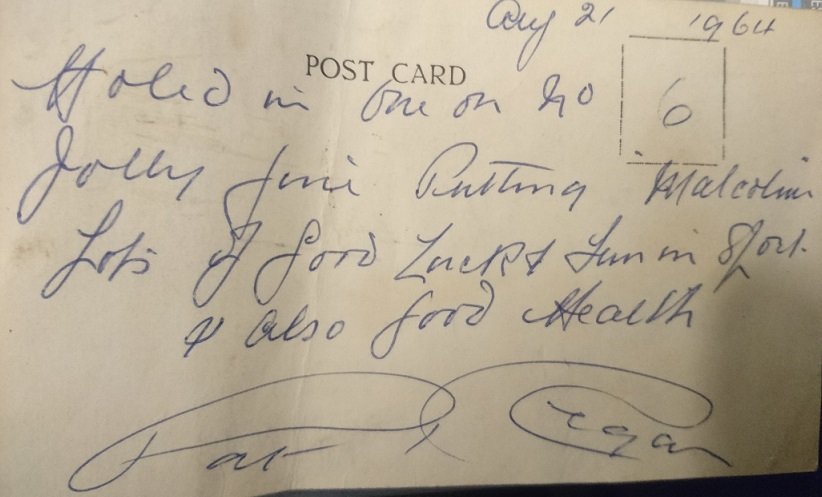 Aug 21 1964
POST CARD
Holed in One on No 6
Jolly fine Putting Malcolm
Lots of Good Luck & Fun in Sport
& also Good Health
Pat Regan